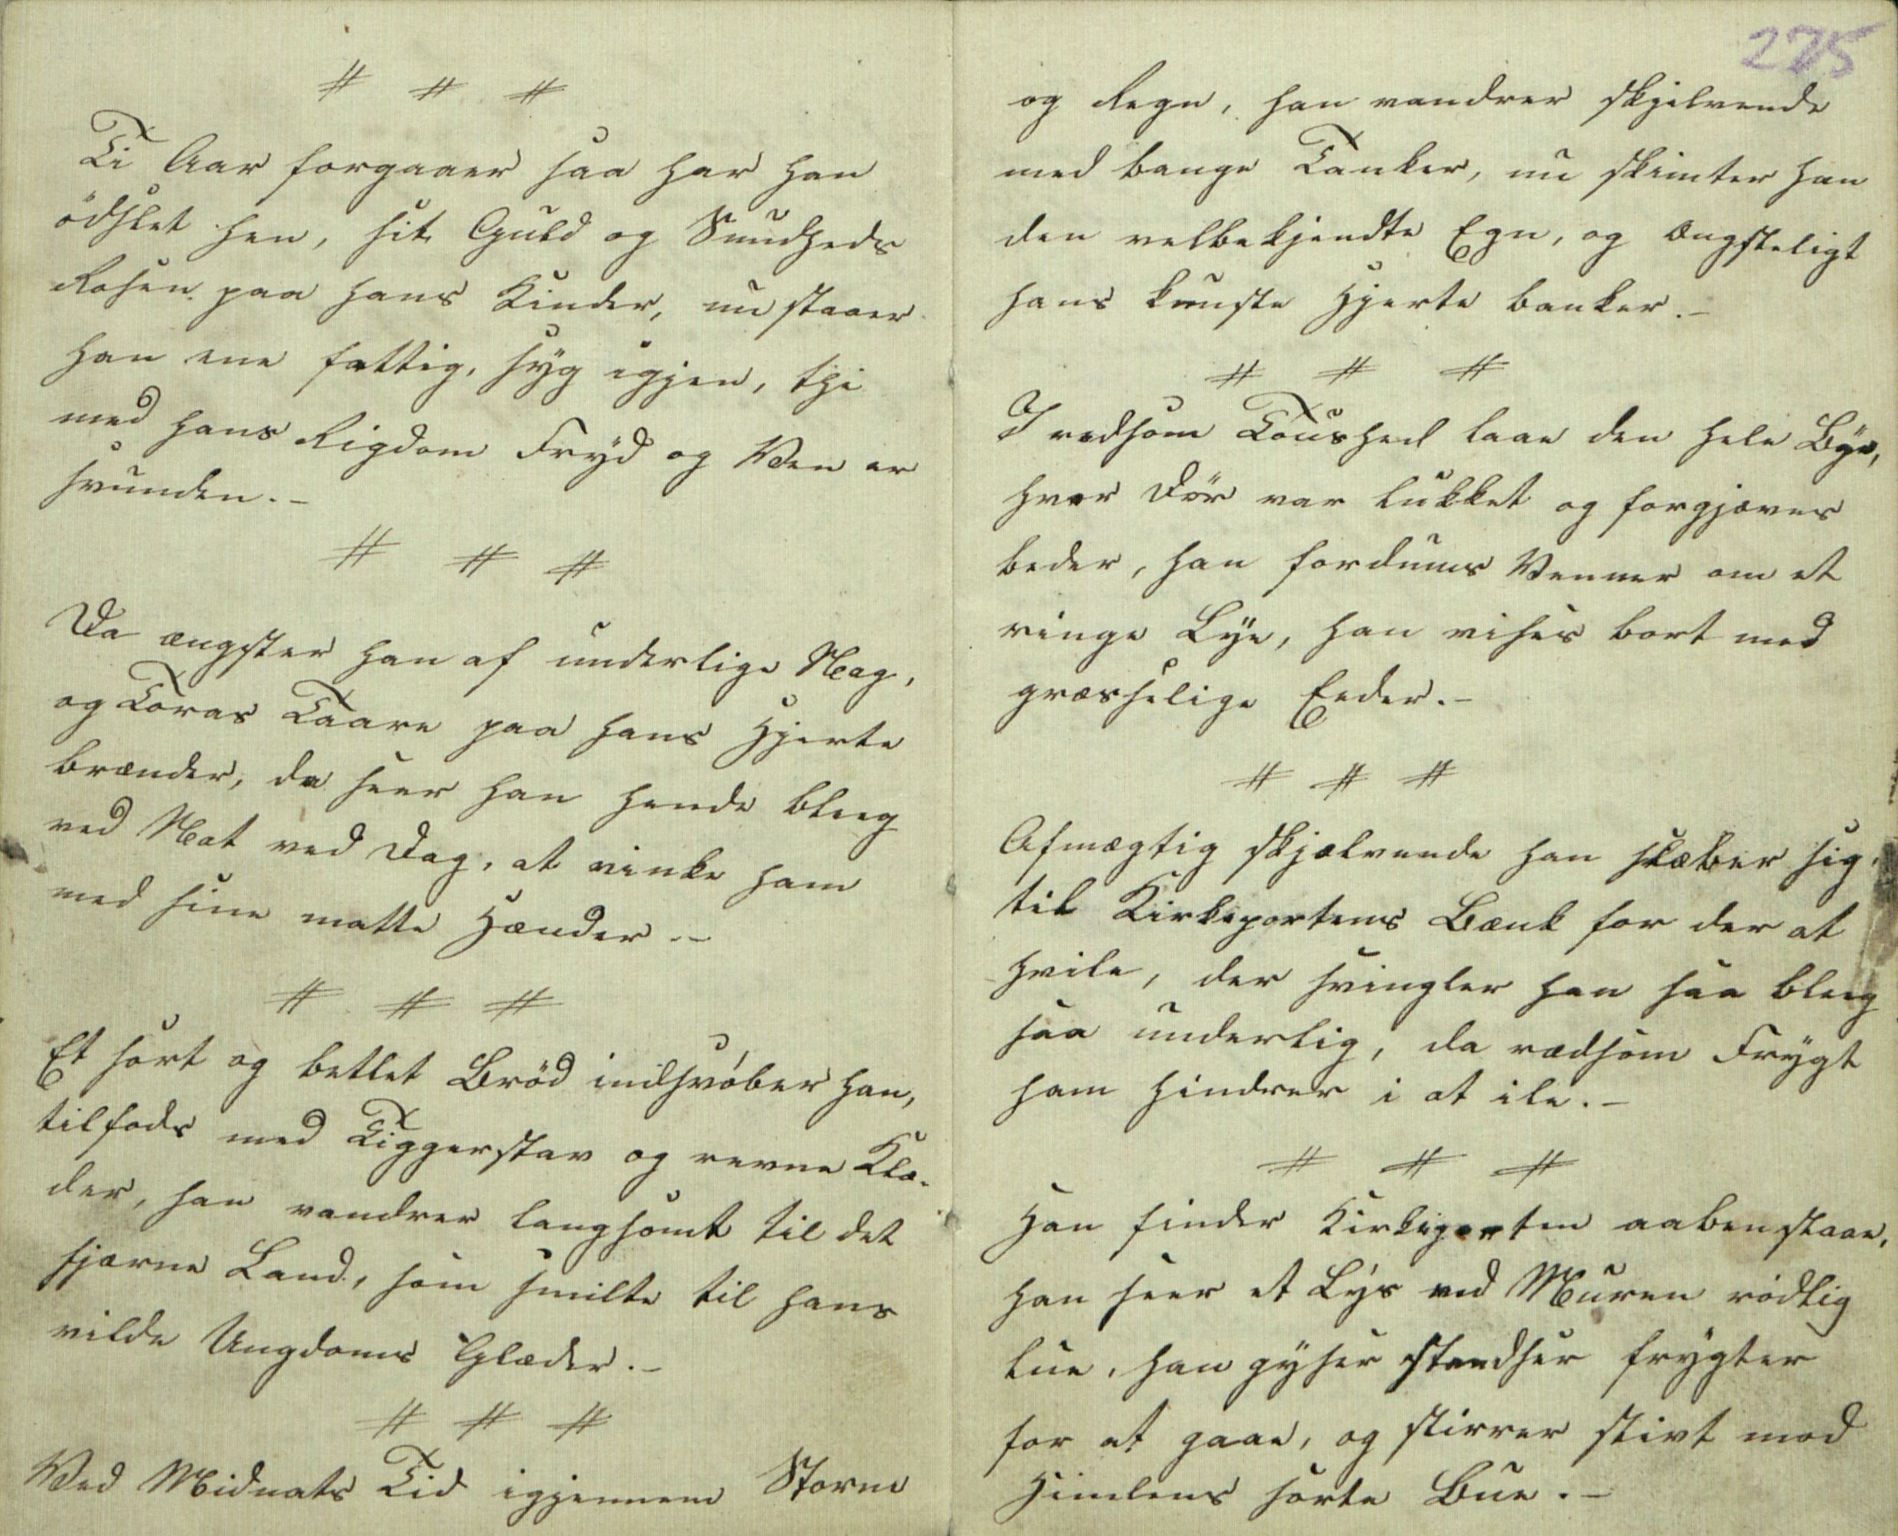 # # #
Ti Aar forgaaer saa har han
ödslet hen, sit Guld og Sundheds
Rosen paa hans Kinder, nu staaer
han ene fattig, syg igjen, thi
med hans Rigdom Fryd og Ven er
svunden.-
# # #
Da ængster han af underlige Nag,
og Toras Taare paa hans Hjerte
brænder, da seer han hende bleeg
ved Nat ved Dag, at vinke ham
med sine matte Hænder.-
# # #
Et sort og betlet Bröd indsvöber han,
tilfods med Tiggerstav og revne Klæ-
der, han vandrer langsomt til det
fjærne Land, som smilte til hans
vilde Ungdoms Glæder.-
# # #
Ved Midnats Tid igjennem Storm
275
og Regn, han vandrer skjelvende
med bange Tanker, nu skimter han
den velbekjendte Egn, og Ængsteligt
hans knuste Hjerte banker.-
# # #
I redsom Toushed laae den hele Bye,
hver Dör var lukket og forgjæves
beder, han fordums Venner om et
ringe Lye, han vises bort med
græsselige Eeder.-
# # #
Afmægtig skjælvende han slæber sig,
til Kirkeportens Bænk for der at
hvile, der svingler han saa bleeg
saa underlig, da rædsom Frygt
ham hindrer i at ile.-
# # #
Han finder Kirkeporten aaben staae,
han seer et Lys ved Muren rödlig
lue, han gyser standser frygter
for at gaae, og stirrer stivt mod
Himlens sorte Bue.-